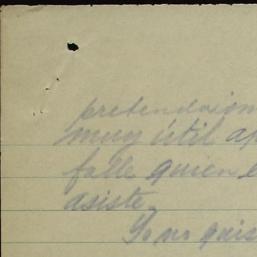 pretendaion
muy útil ap
falle quien e
asiste.
Yo no quis